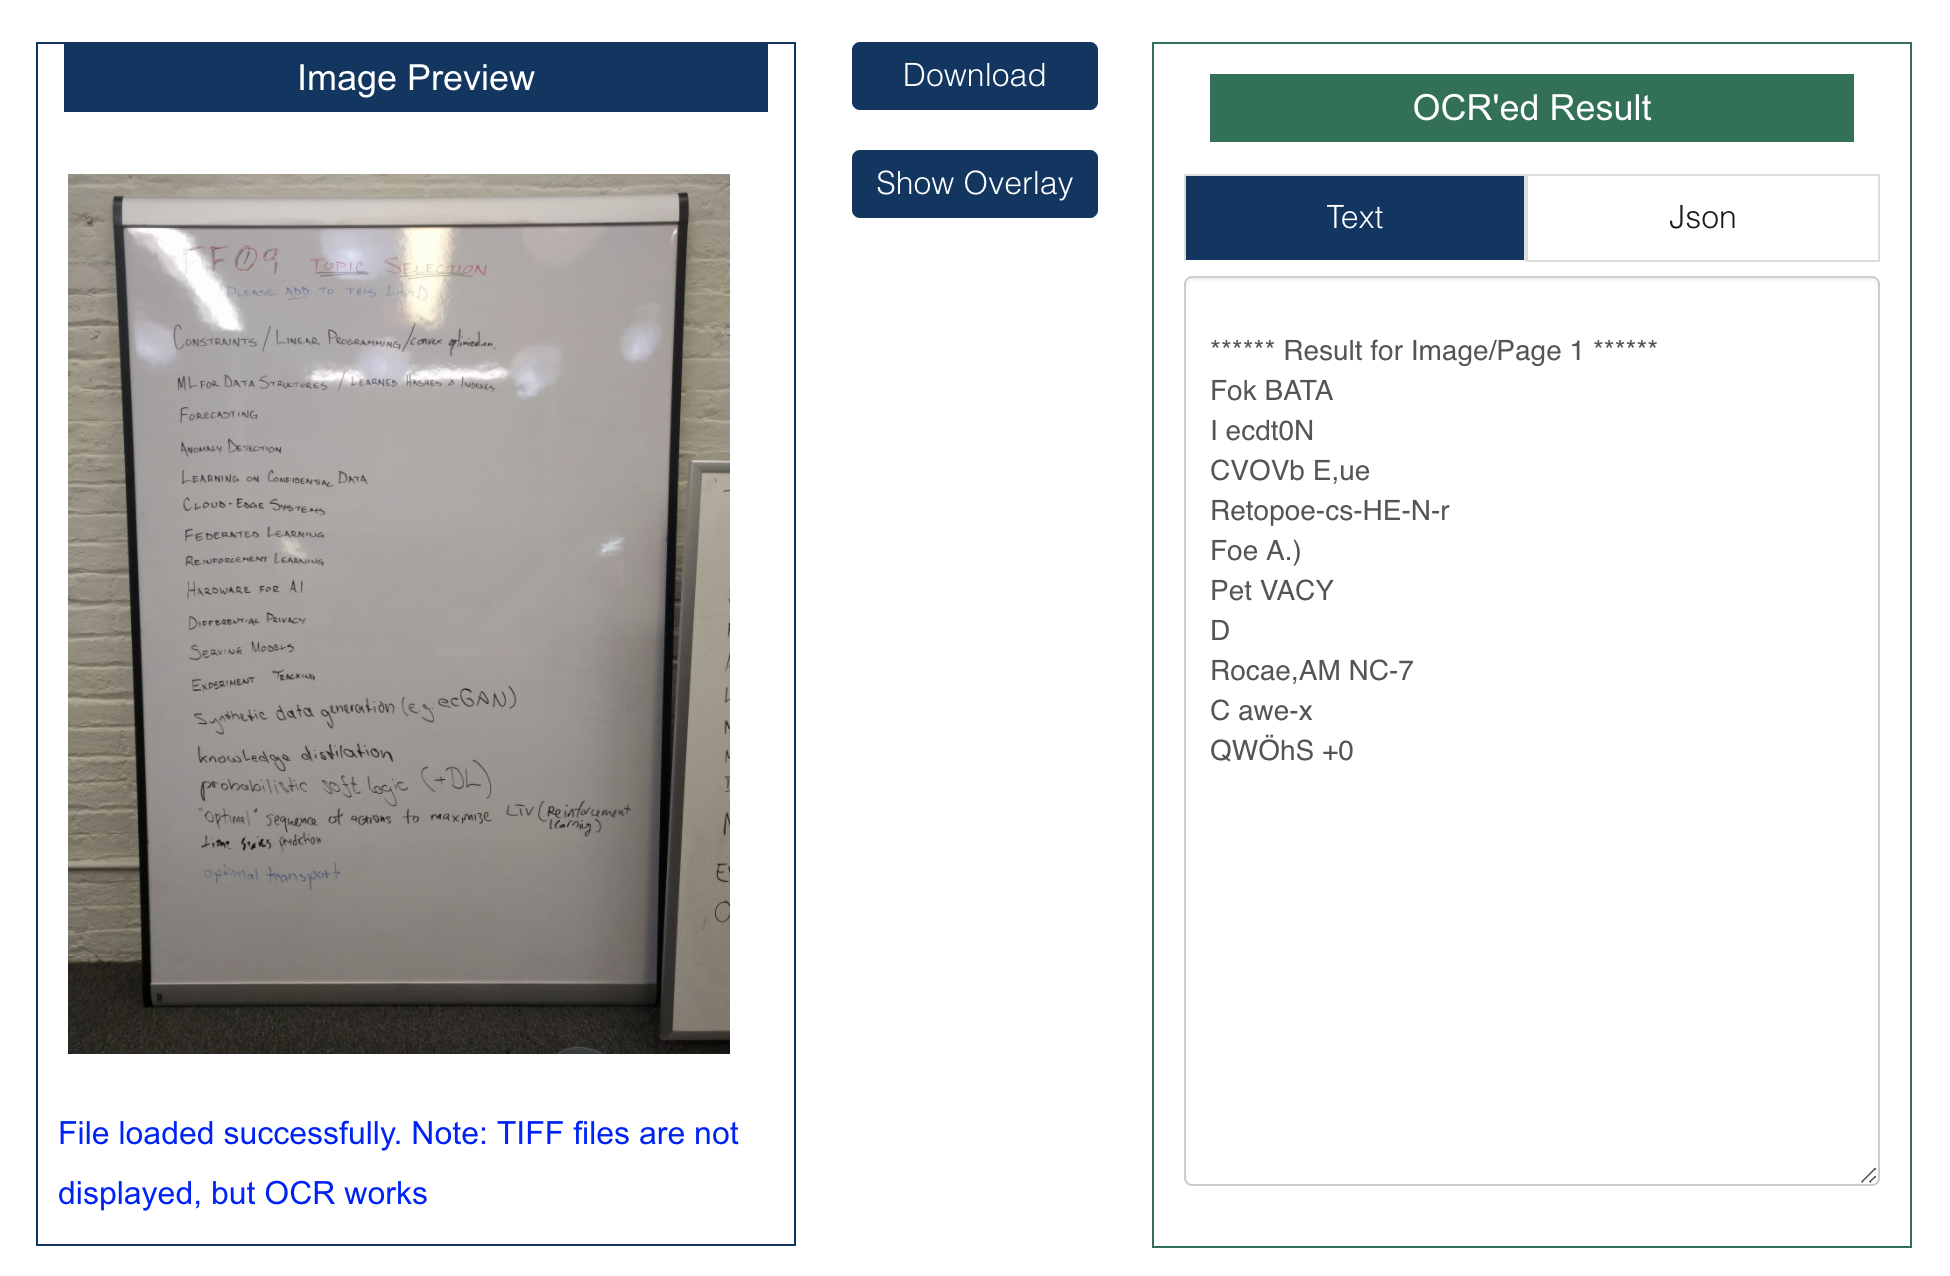 Image Preview
FF09 TOPIC SELECTION
(PLEASE ADD TO THIS LIST!)
CONSTRAINTS / LINEAR PROGRAMMING / convex optimization.
ML FOR DATA STRUCTURES / LEARNED HASHES & INDEXES
FORECASTING
ANOMALY DETECTION
LEARNING ON CONFIDENTIAL DATA
CLOUD-EDGE SYSTEMS
FEDERATED LEARNING
REINFORCEMENT LEARNING
HARDWARE FOR A.I.
DIFFERENTIAL PRIVACY
SERVING MODELS
EXPERIMENT TRACKING
Synthetic data generation (e.g. ecGAN)
knowledge distilation
probabilistic soft logic (+DL)
"Optimal" sequence of actions to maximize LTV (Reinforcement
learning)
time series prediction
optimal transport
File loaded successfully. Note: TIFF files are not
displayed, but OCR works
Download
Show Overlay
OCR'ed Result
Text Json
****** Result for Image/Page 1 ******
Fok BATA
I ecdt0N
CVOVb E,ue
Retopoe-cs-HE-N-r
Foe A.)
Pet VACY
D
Rocae,AM NC-7
C awe-x
QWÖhS +0